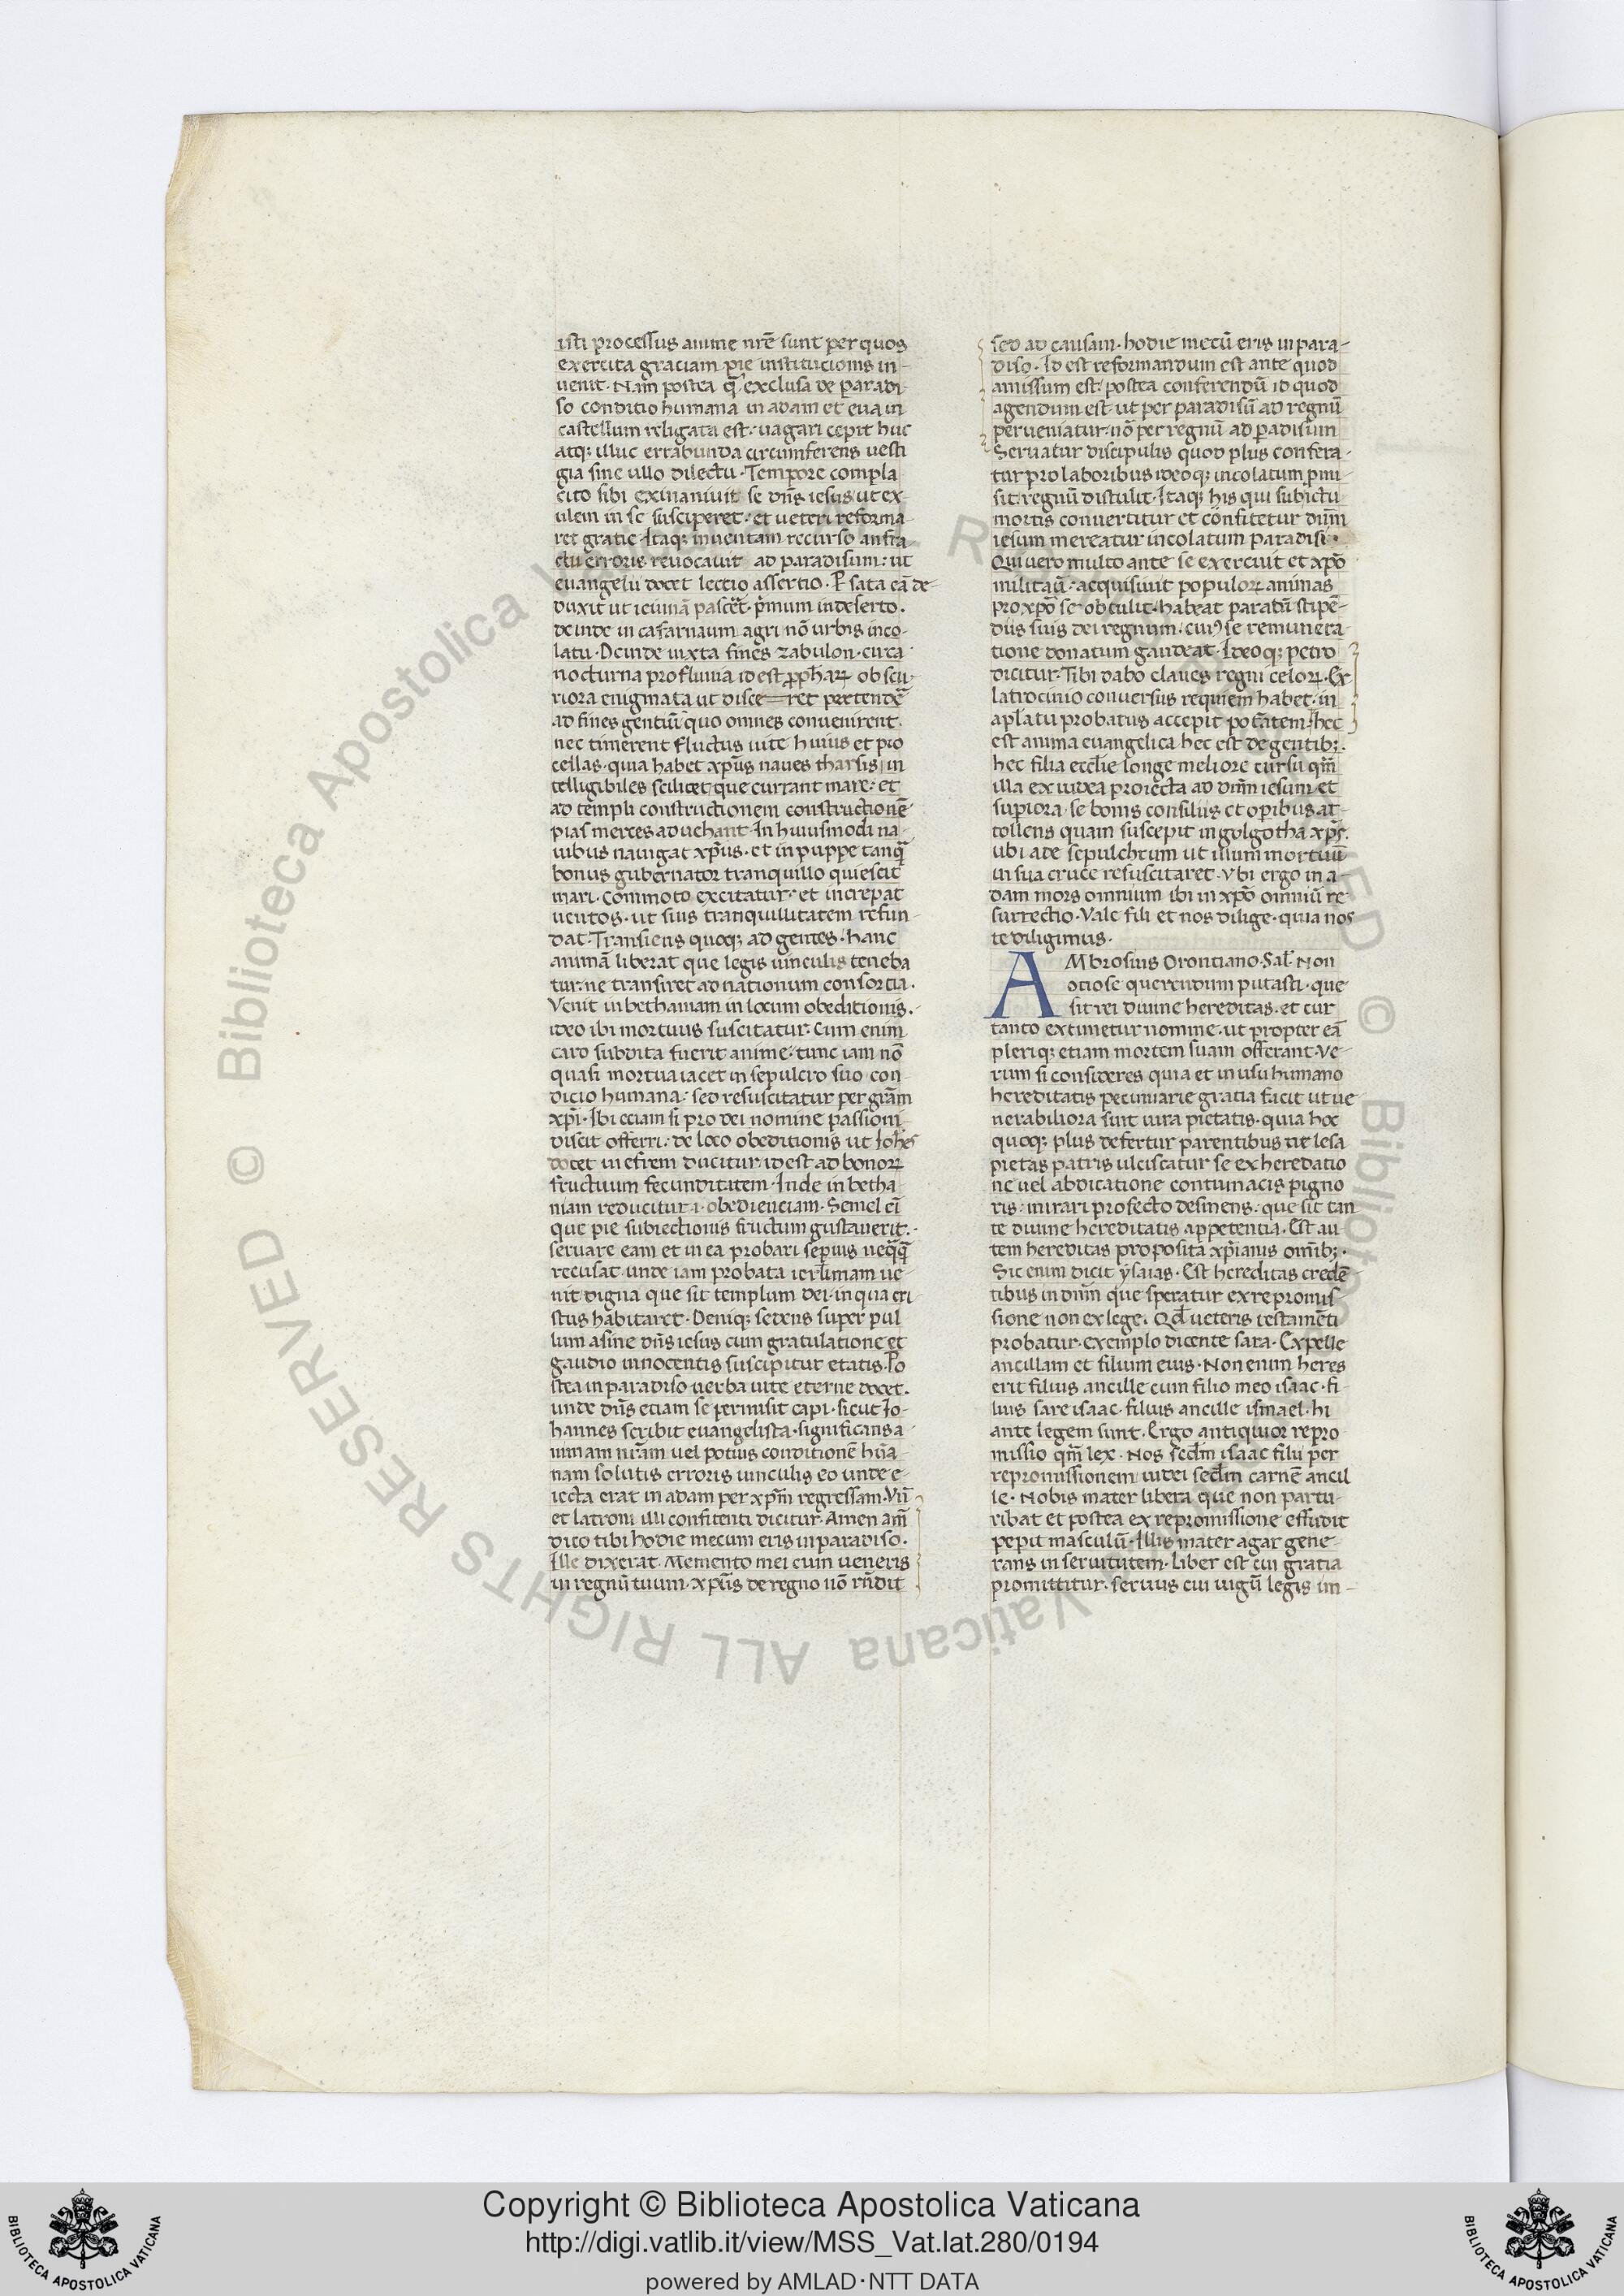 isti processus anime nr̃e sunt per quos
exercita graciam pie institucionis in-
uenit. Nam postea q̃ exclusa de paradi-
so conditio humana in adam et eua in
castellum religata est: uagari cepit huc
atq; illuc errabunda circumferens uesti
gia sine ullo dilectu. Tempore compla
cito sibi exinaniuit se dñs iesus ut ex-
ulem in se susciperet: et ueteri reforma-
ret gratie. Itaq; inuentam recurso anfra-
ctu erroris reuocauit ad paradisum: ut
euangelii docet lectio assertio. P sata eã de-
duxit ut ieiunã pasceret. p̃mum in deserto.
deinde in cafarnaum agri nõ urbis inco-
latu. Deinde iuxta fines zabulon. circa
nocturna profluuia id est ꝓphaꝝ obscu-
riora enigmata ut disceret pertendẽ
ad fines gentiũ quo omnes conuenirent.
nec timerent fluctus uite huius et pro
cellas. quia habet xp̃us naues tharsis in
telligibiles scilicet que currant mare: et
ad templi constructionem constructionẽ
pias merces aduehant. In huiusmodi na-
uibus nauigat xp̃us. et in puppe tanq̃
bonus gubernator tranquillo quiescit
mari. Commoto excitatur: et increpat
uentos. ut suis tranquillitatem refun-
dat. Transiens quoq; ad gentes. hanc
animã liberat que legis uinculis teneba
tur: ne transiret ad nationum consortia.
Venit in bethaniam in locum obeditionis.
ideo ibi mortuus suscitatur. Cum enim
caro subdita fuerit anime: tunc iam nõ
quasi mortua iacet in sepulcro suo con-
dicio humana: sed resuscitatur per gr̃am
xp̃i. Ibi eciam si pro dei nomine passioni
discit offerri: de loco obeditionis ut Ioh̃es
docet in efrem ducitur id est ad bonoꝝ
fructuum fecunditatem. Inde in betha-
niam reducitur .i. obedienciam. Semel eĩ
que pie subiectionis fructum gustauerit.
seruare eam et in ea probari sepius neq̃q̃
recusat. unde iam probata ierl̃imam ue-
nit digna que sit templum dei. in qua cri-
stus habitaret. Deniq; sedens super pul
lum asine dñs iesus cum gratulatione et
gaudio innocentis suscipitur etatis. Po
stea in paradiso uerba uite eterne docet.
unde dñs etiam se permisit capi. sicut Io-
hannes scribit euangelista. significans a-
nimam nr̃am uel potius conditionẽ hũa-
nam solutis erroris uinculis eo unde e-
iecta erat in adam per xp̃m regressam. Vñ
et latroni illi confitenti dicitur. Amen amẽ
dico tibi hodie mecum eris in paradiso.
Ille dixerat. Memento mei cum ueneris
in regnũ tuum. xp̃us de regno nõ rñdit
sed ad causam. hodie mecũ eris in para-
diso. Id est reformandum est ante quod
amissum est: postea conferendũ id quod
agendum est ut per paradisũ ad regnũ
perueniatur: nõ per regnũ ad paradisum
Seruatur discipulis quod plus confera-
tur pro laboribus ideoq; incolatum p̃mi
sit regnũ distulit. Itaq; his qui sub ictu
mortis conuertitur et cõnfitetur dñm
iesum mereatur incolatum paradisi.
Qui uero multo ante se exercuit et xp̃o
militauĩ: acquisiuit populoꝝ animas
pro xp̃o se obtulit. habeat paratũ stipẽ-
diis suis dei regnum. cuiꝰ se remunera-
tione donatum gaudeat. Ideoq; petro
dicitur. Tibi dabo claues regni celoꝝ. Ex
latrocinio conuersus requiem habet. in
apl̃atu probatus accepit poťatem. hec
est anima euangelica hec est de gentib;.
hec filia eccl̃ie longe meliore cursu qm̃
illa ex iudea proiecta ad dñm iesum et
supiora. se bonis consiliis et opibus at-
tollens quam suscepit in golgotha xp̃s.
ubi ade sepulchrum ut illum mortuũ
in sua cruce resuscitaret. Vbi ergo in a-
dam mors omnium ibi in xp̃o omniũ re
surrectio. Vale fili et nos dilige. quia nos
te diligimus.
AMbrosius Orontiano. Sal̃. Non
ociose querendum putasti. que
sit rei diuine hereditas. et cur
tanto extimetur nomine. ut propter eã
pleriq; etiam mortem suam offerant. Ve-
rum si consideres quia et in usu humano
hereditatis pecuniarie gratia facit ut ue
nerabiliora sint iura pietatis. quia hoc
quoq; plus defertur parentibus ne lesa
pietas patris ulciscatur se exheredatio
ne uel abdicatione contumacis pigno
ris: mirari profecto desinens: que sit tan
te diuine hereditatis appetentia. Est au-
tem hereditas proposita xp̃ianis om̃ib;.
Sic enim dicit ysaias. Est hereditas credẽ-
tibus in dñm que speratur ex repromis
sione non ex lege. Qd̃ ueteris testamẽti
probatur. exemplo dicente sara. Expelle
ancillam et filium eius. Non enim heres
erit filius ancille cum filio meo isaac. fi-
lius sare isaac. filius ancille ismael. hi
ante legem sunt. Ergo antiquior repro
missio qm̃ lex. Nos scd̃m isaac filii per
repromissionem iudei scd̃m carnẽ ancil
le. Nobis mater libera que non partu-
ribat et postea ex repromissione effudit
pepit masculũ. Illis mater agar gene-
rans in seruitutem. Liber est cui gratia
promittitur. seruus cui iugũ legis im-
Copyright © Biblioteca Apostolica Vaticana
http://digi.vatlib.it/view/MSS_Vat.lat.280/0194
powered by AMLAD·NTT DATA
BIBLIOTECA APOSTOLICA VATICANA
BIBLIOTECA APOSTOLICA VATICANA
© Biblioteca Apostolica Vaticana ALL RIGHTS RESERVED
© Biblioteca Apostolica Vaticana ALL RIGHTS RESERVED